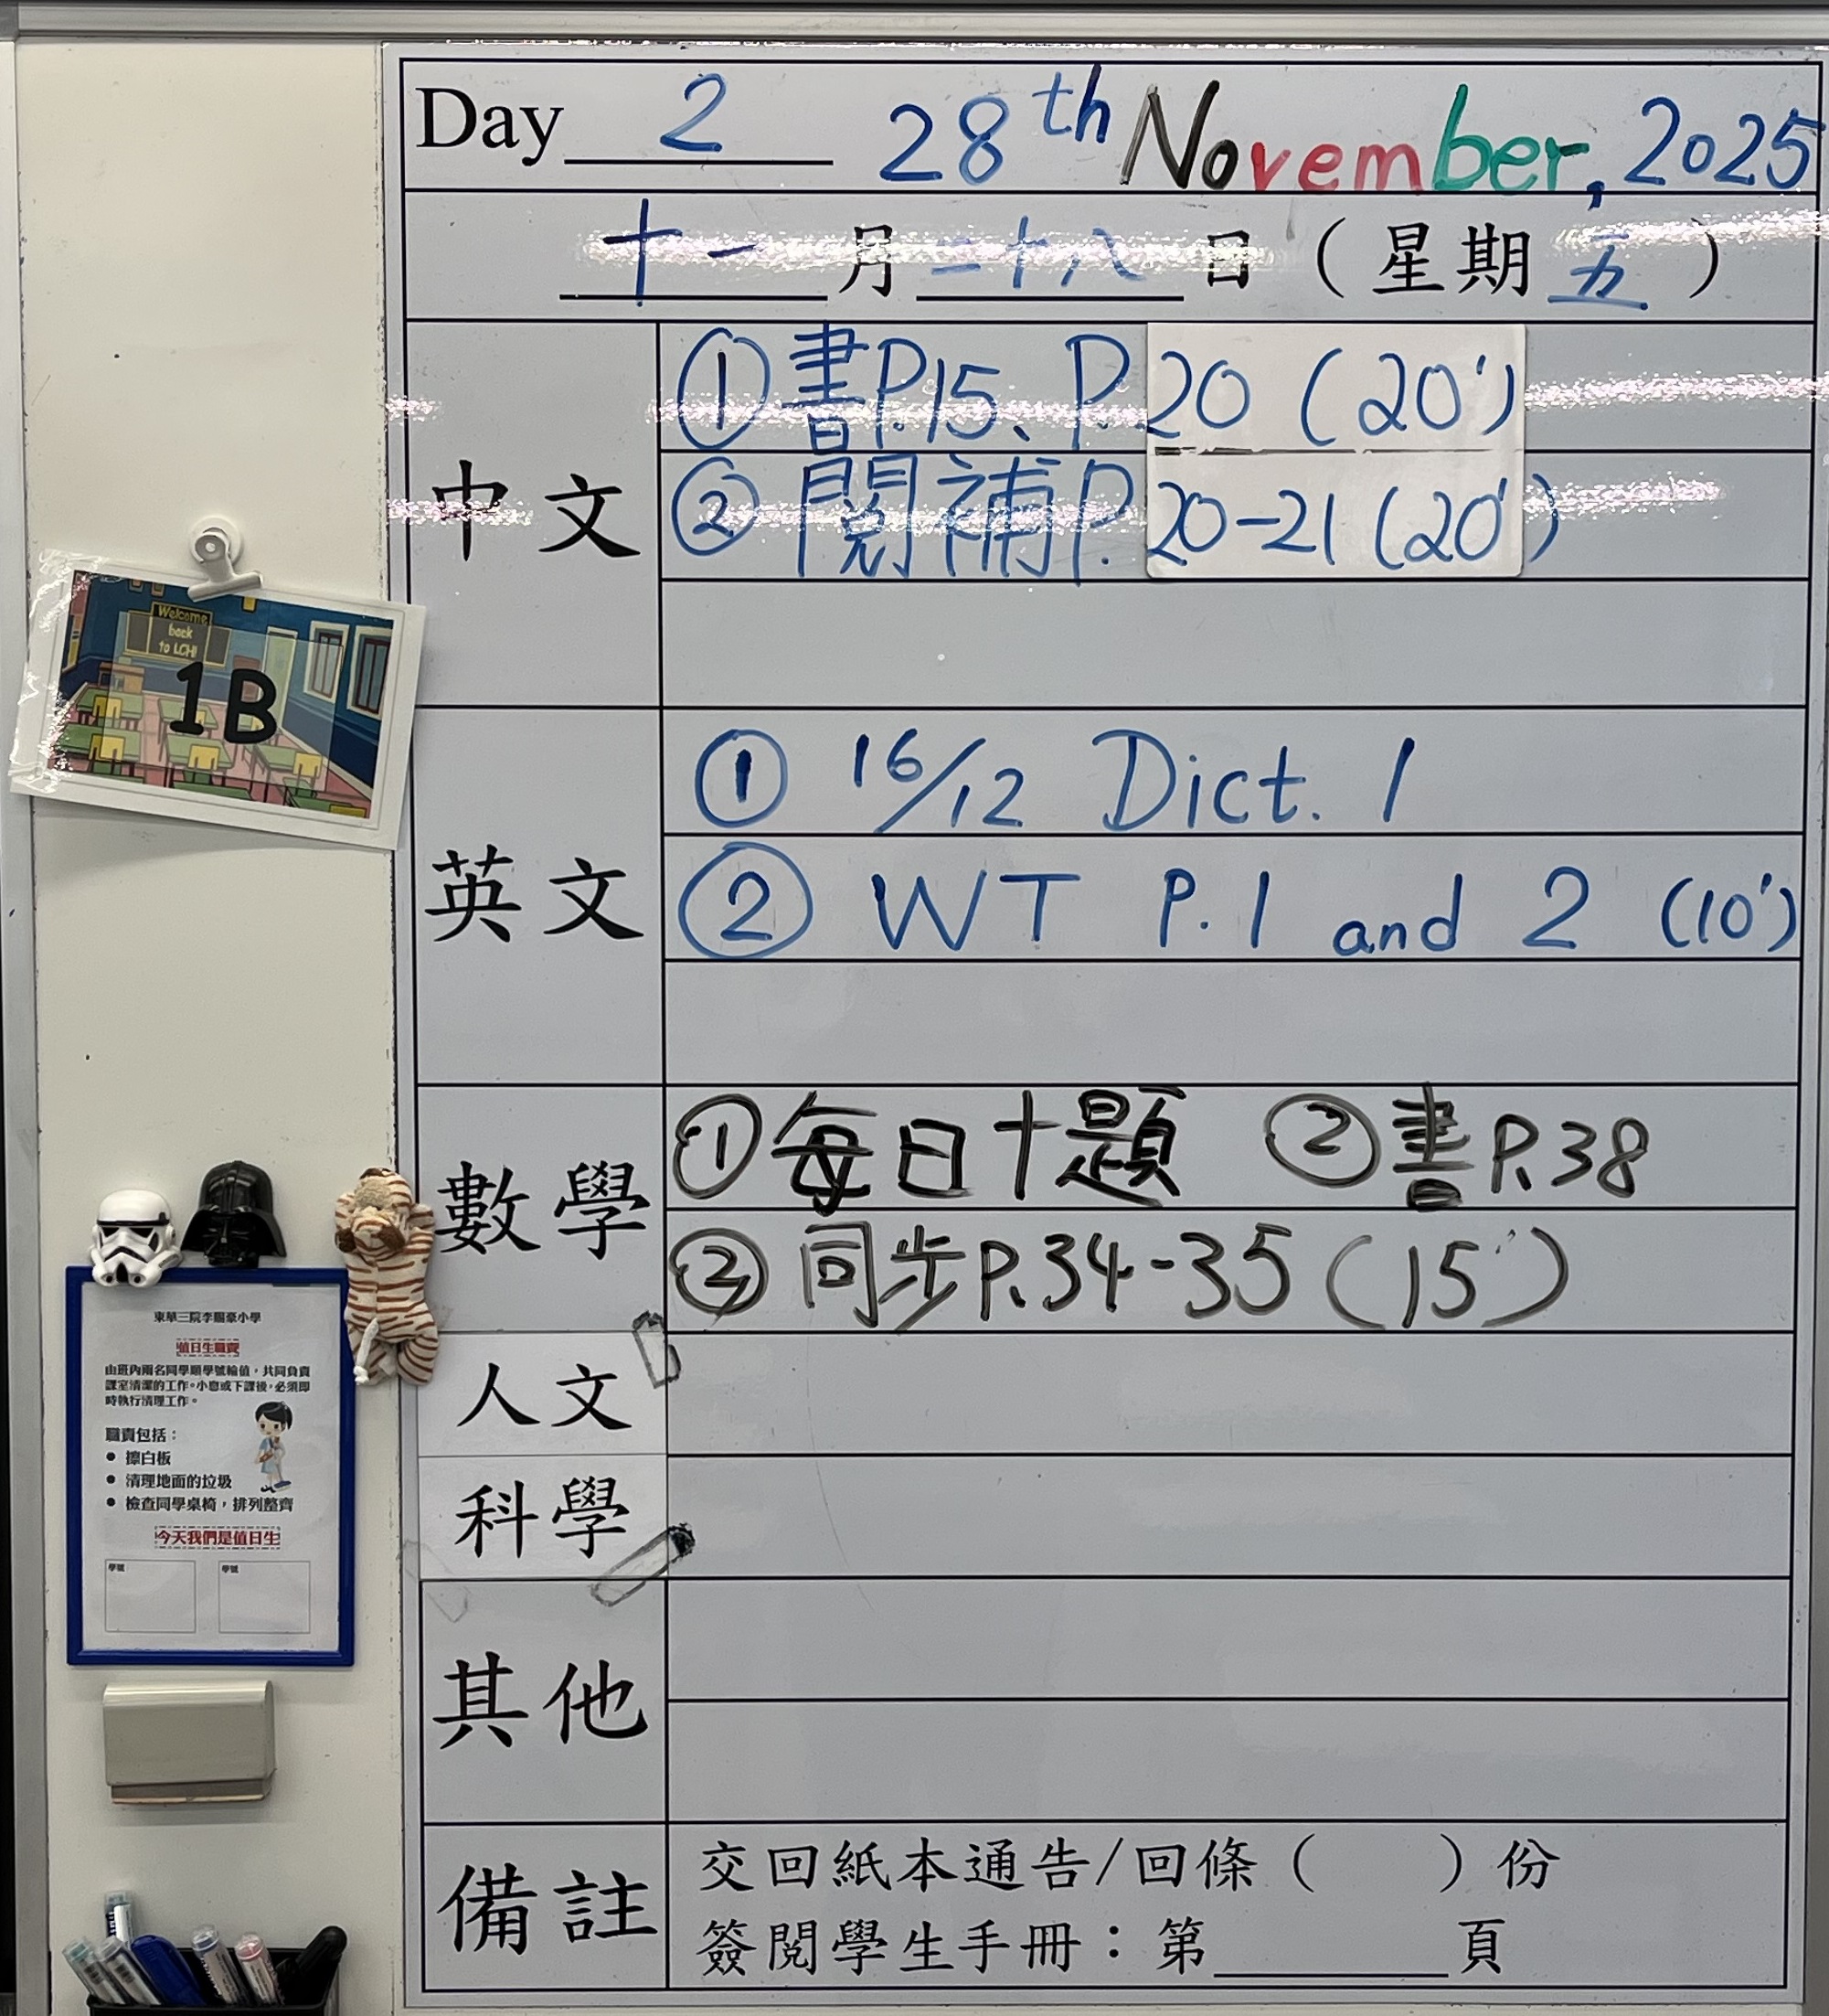 Day 2 28th November, 2025
十一月二十八日（星期五）
中文
①書P.15、P.20 (20')
②閱補P.20-21 (20')
英文
① 16/12 Dict. 1
② WT P.1 and 2 (10')
數學
①每日十題 ②書P.38
③同步P.34-35 (15')
人文
科學
其他
備註
交回紙本通告/回條（ ）份
簽閱學生手冊：第____頁
Welcome
back
to LCH!
1B
東華三院李賜豪小學
值日生職責
由班內兩名同學順學號輪值，共同負責
課室清潔的工作。小息或下課後，必須即
時執行清理工作。
職責包括：
● 擦白板
● 清理地面的垃圾
● 檢查同學桌椅，排列整齊
今天我們是值日生
學號 學號